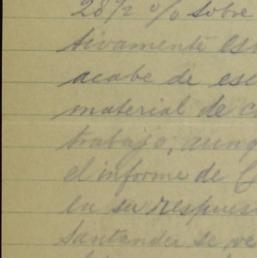 28½ % sobre
tivamente es
acabe de es
material de c
trabajo, aunq
el informe de
en su respues
santander se ve